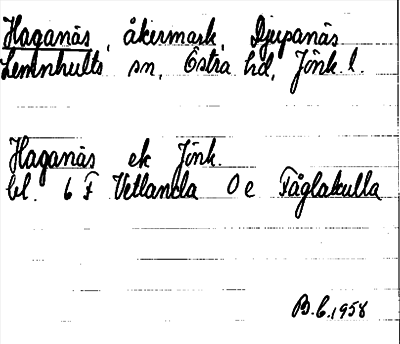 Haganäs, åkermark, Djupanäs
Lemnhults sn, Östra hd, Jönk. l.
Haganäs ek Jönk.
bl. 6 F Vetlanda 0 e Fåglakulla
B.C. 1958